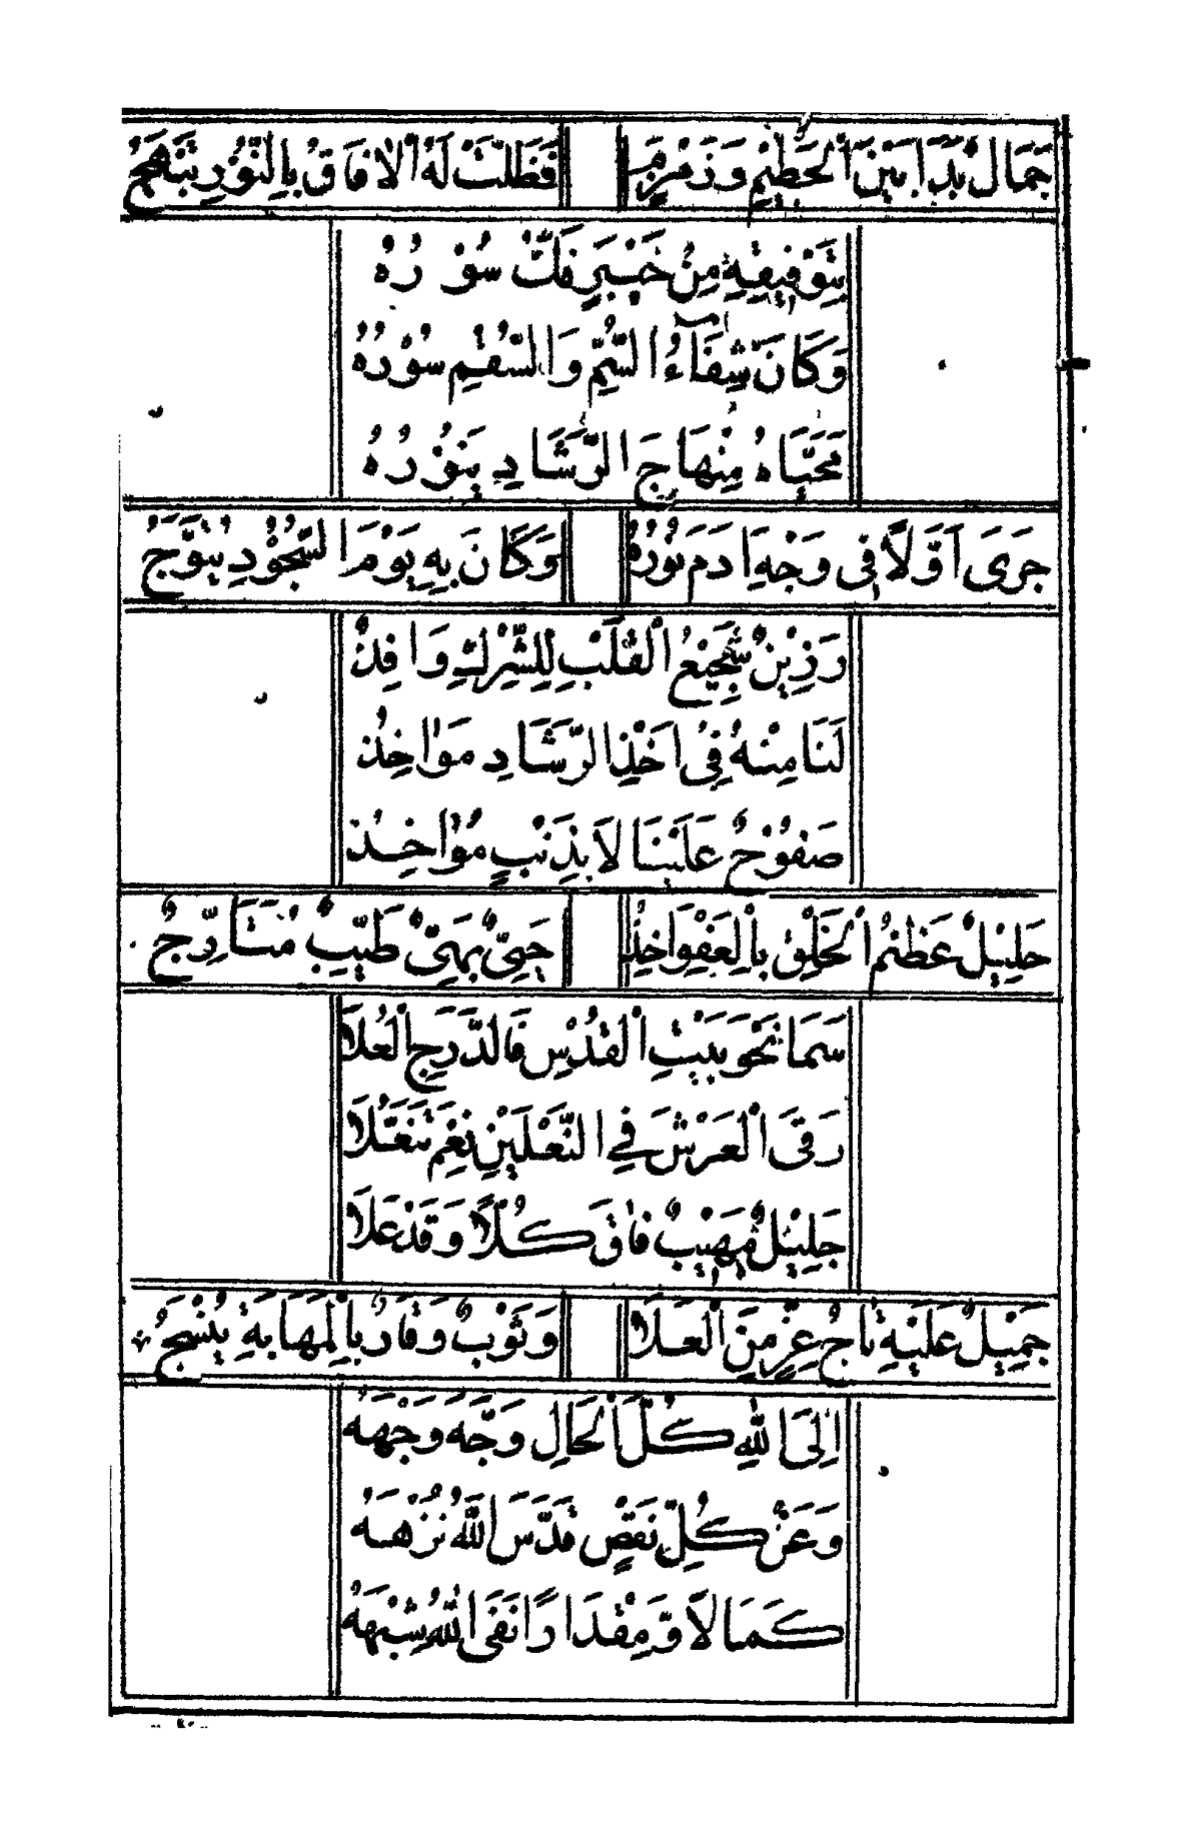 جَمَالٌ بَدَا بَيْنَ الْحَطِيْمِ وَزَمْزَمَ فَظَلَّتْ لَهُ الْاٰفَاقُ بِالنُّوْرِ تَبْهَجُ
بِتَوْفِيْقِهِ مِنْ خَيْبَرٍ فَكَّ سُوْرُهُ
وَكَانَ شِفَآءُ السُّمِّ وَالسُّقْمِ سُؤْرُهُ
مَحَيَّاهُ مِنْهَاجَ الرَّشَادِ بِنُوْرُهُ
جَرَى اَوَّلًا فِى وَجْهِ اٰدَمَ نُوْرُهُ وَكَانَ بِهِ يَوْمَ السُّجُوْدِ يُتَوَّجُ
رَزِيْنٌ شَجِيْعُ الْقَلْبِ لِلشِّرْكِ وَاقِذٌ
لَنَا مِنْهُ فِىْ اَخْذِ الرَّشَادِ مَوَاخِذُ
صَفُوْحٌ عَلَيْنَا لَا بِذَنْبٍ مُؤَاخِذُ
جَلِيْلٌ عَظِيْمُ الْخَلْقِ بِالْعَفْوِ اٰخِذٌ حَيِىٌّ بَهِىٌّ طَيِّبٌ مُتَاَرِّجُ
سَمَا نَحْوَ بَيْتِ الْقُدْسِ فَالدَّرَجِ الْعُلَا
رَقَى الْعَرْشَ فِي النَّعْلَيْنِ نِعْمَ تَنَعُّلَا
جَلِيْلٌ مَهِيْبٌ فَاقَ كُلًّا وَقَدْ عَلَا
جَمِيْلٌ عَلَيْهِ تَاجُ عِزٍّ مِنَ الْعَلَا وَثَوْبُ وَقَارٍ بِالْمَهَابَةِ يُنْسَجُ
اِلَى اللّٰهِ كُلَّ الْحَالِ وَجَّهَ وَجْهَهُ
وَعَنْ كُلِّ نَقْصٍ قَدَّسَ اللّٰهُ نُزْهَهُ
كَمَالًا وَّمِقْدَارًا نَفَى اللّٰهُ شِبْهَهُ